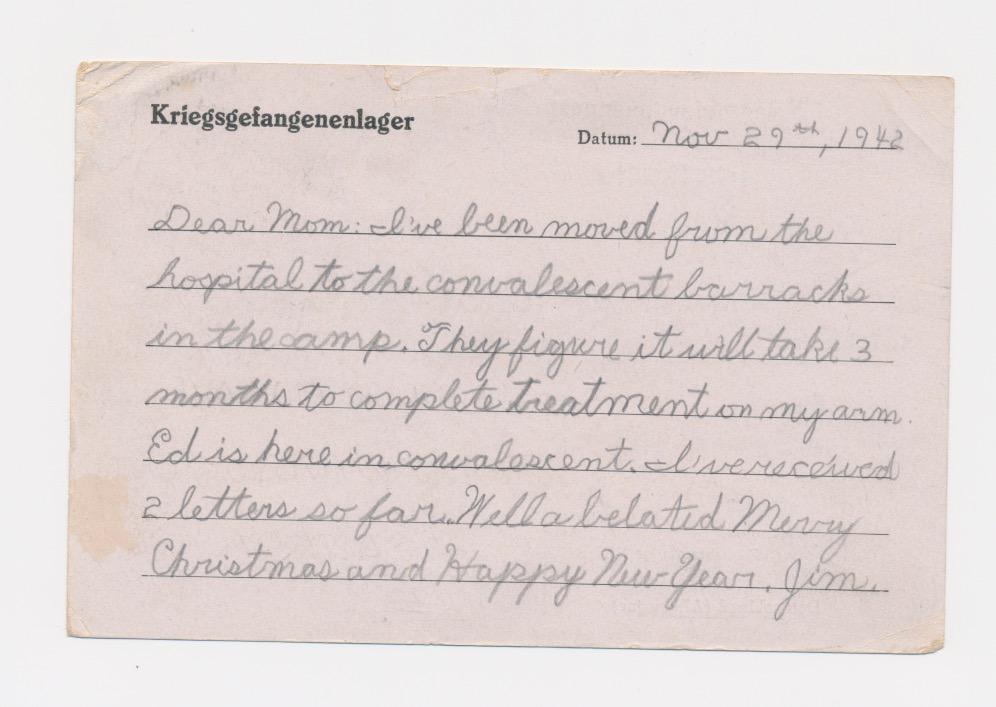 Kriegsgefangenenlager
Datum: Nov 29th, 1942
Dear Mom: I've been moved from the
hospital to the convalescent barracks
in the camp. They figure it will take 3
months to complete treatment on my arm.
Ed is here in convalescent. I've received
2 letters so far. Well a belated Merry
Christmas and Happy New Year. Jim.